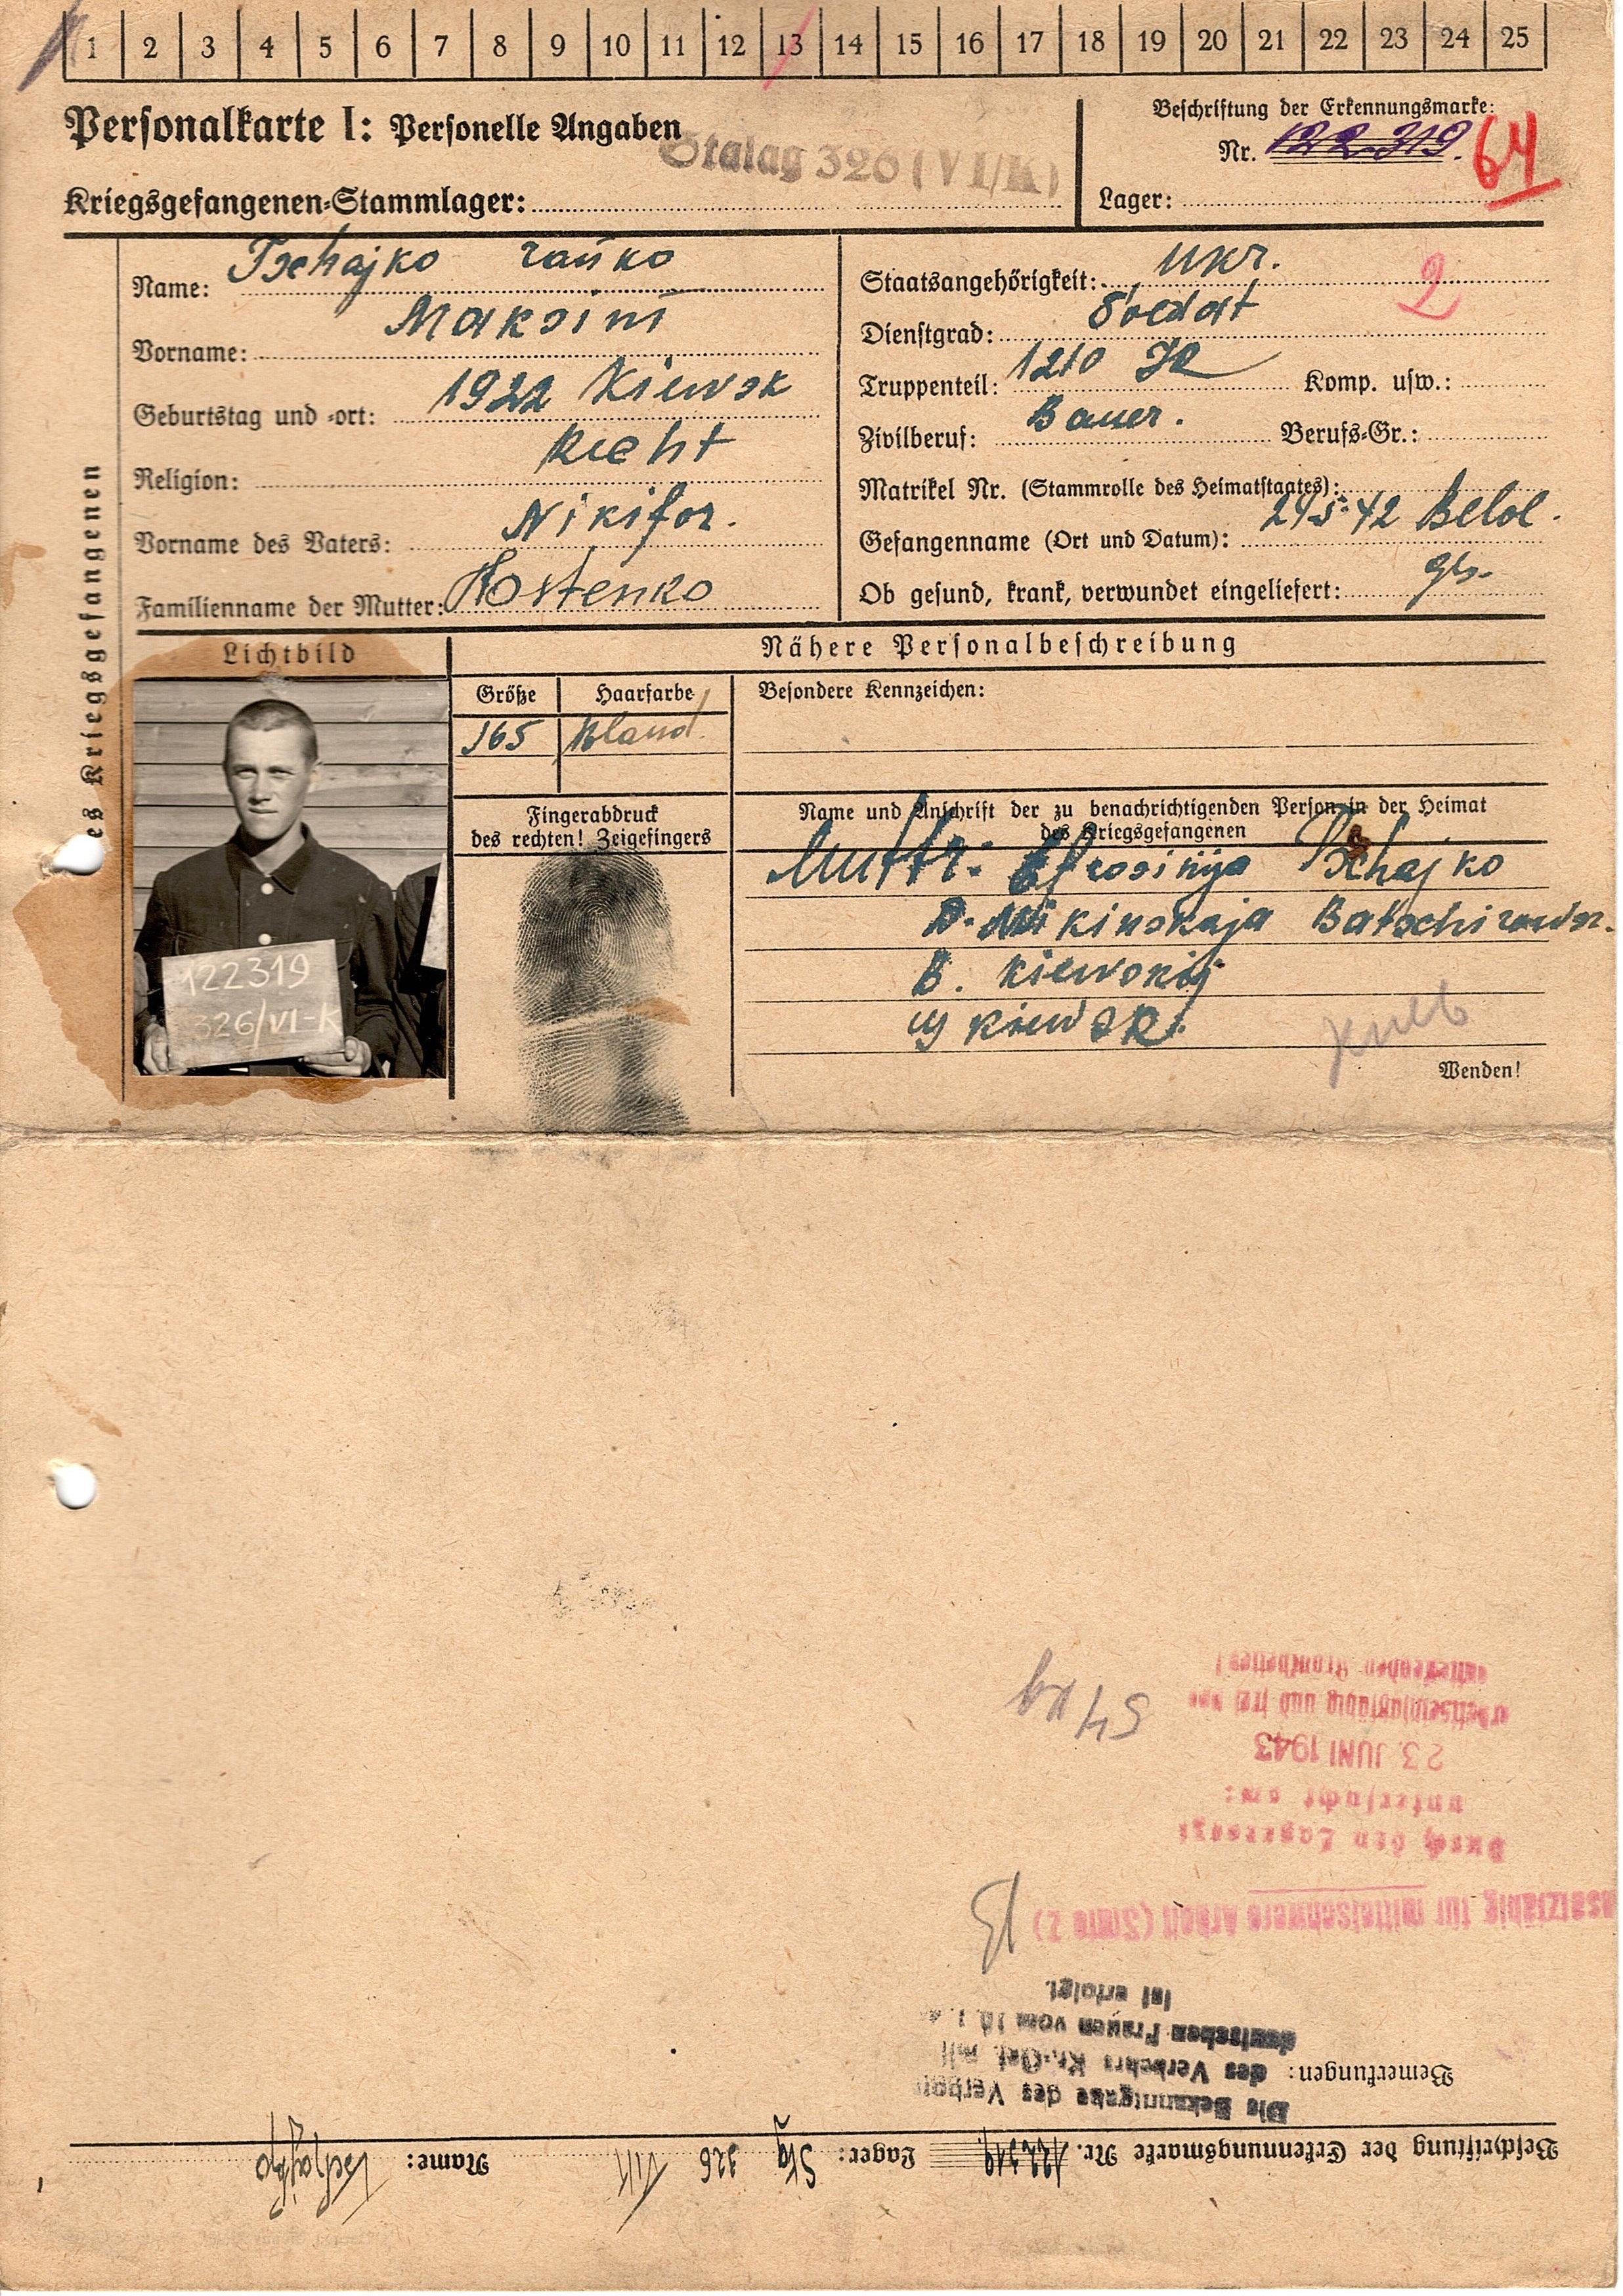 1 2 3 4 5 6 7 8 9 10 11 12 13 14 15 16 17 18 19 20 21 22 23 24 25
Personalkarte I: Personelle Angaben
Stalag 326 (VI/K)
Kriegsgefangenen-Stammlager:
Beschriftung der Erkennungsmarke:
Nr. 122 319. 64
Lager:
es Kriegsgefangenen
Name: Tschajko
Vorname: Maksim
Geburtstag und -ort: 1922 Kiewsk
Religion:
Vorname des Vaters: Nikifor.
Familienname der Mutter: Kostenko
Staatsangehörigkeit: Ukr. 2
Dienstgrad: Soldat
Truppenteil: 1210 IR Komp. usw.:
Zivilberuf: Bauer. Berufs-Gr.:
Matrikel Nr. (Stammrolle des Heimatstaates):
Gefangennahme (Ort und Datum): 24.5.42 Belol.
Ob gesund, krank, verwundet eingeliefert: gs.
Lichtbild
122319
326/VI-K
Nähere Personalbeschreibung
Größe Haarfarbe
165 Bland
Besondere Kennzeichen:
Fingerabdruck
des rechten! Zeigefingers
Name und Anschrift der zu benachrichtigenden Person in der Heimat
des Kriegsgefangenen
Muttr: Efrosinija Tschajko
B. Kiewskij
Kiewsk.
Wenden!
Beschriftung der Erkennungsmarke Nr. 122319 Lager: Stlg 326 VI K Name: Tschajko
Bemerkungen:
Die Bekanntgabe des Verbots
des Verkehrs Kr.-Gef. mit
deutschen Frauen vom 10.1.
ist erfolgt.
nsatzfähig für mittelschwere Arbeit (Stufe 2)
Durch den Lagerarzt
untersucht am:
23. JUNI 1943
arbeitseinsatzfähig und frei von
ansteckenden Krankheiten!
54 kg